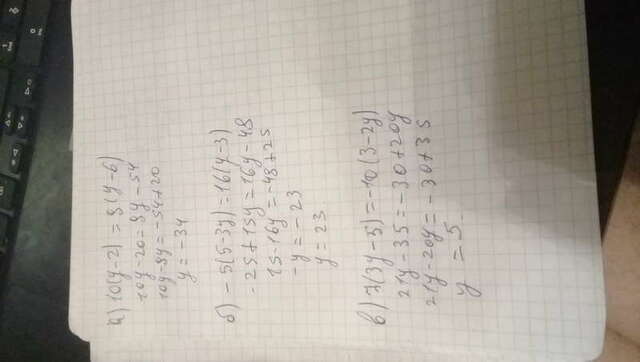 а) 10(y-2) = 9(y-6)
10y-20=9y-54
10y-9y=-54+20
y=-34
б) -5(5-3y)=16(y-3)
-25+15y=16y-48
15-16y=-48+25
-y=-23
y=23
в) 7(3y-5)=-10(3-2y)
21y-35=-30+20y
21y-20y=-30+35
y=5.